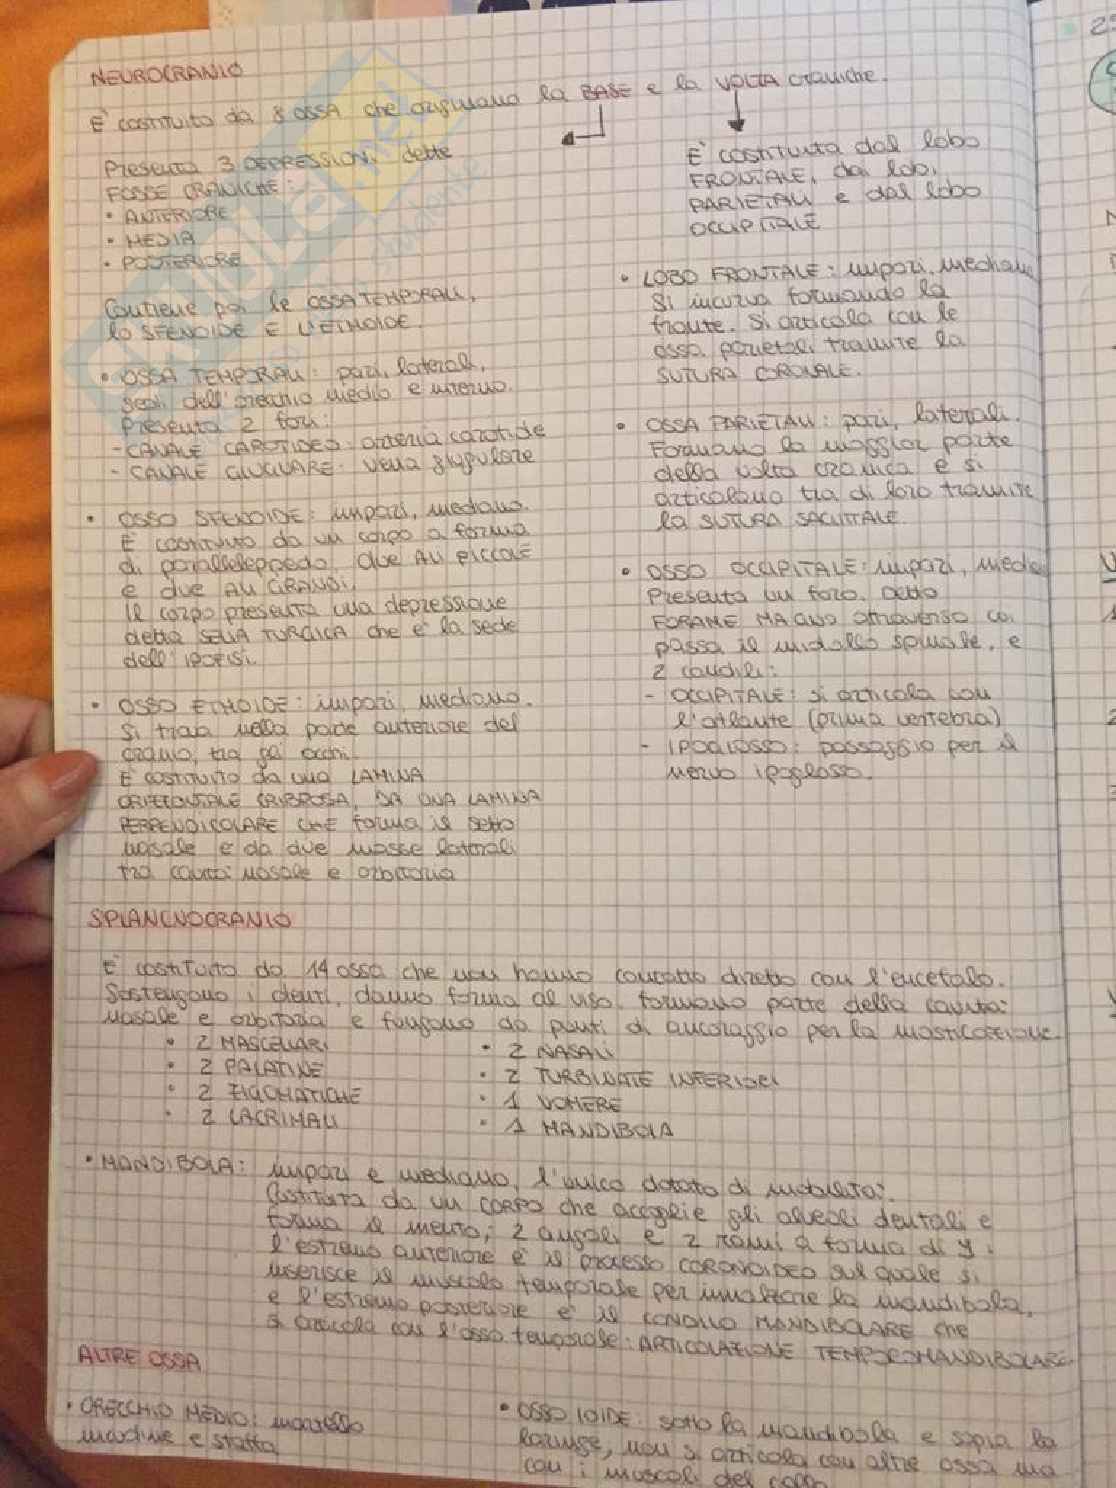 NEUROCRANIO
E' costituito da 8 OSSA che originano la BASE e la VOLTA craniche.
Presenta 3 DEPRESSIONI dette
FOSSE CRANICHE:
• ANTERIORE
• MEDIA
• POSTERIORE
Contiene poi le OSSA TEMPORALI,
lo SFENOIDE E L'ETMOIDE.
• OSSA TEMPORALI: pari, laterali,
sedi dell'orecchio medio e interno.
Presenta 2 fori:
- CANALE CAROTIDEO: arteria carotide
- CANALE GIUGULARE: vena giugulare
• OSSO SFENOIDE: impari, mediano.
E' costituito da un corpo a forma
di parallelepipedo, due ALI PICCOLE
e due ALI GRANDI.
Il corpo presenta una depressione
detta SELLA TURCICA che e' la sede
dell'ipofisi.
• OSSO ETMOIDE: impari, mediano.
Si trova nella parte anteriore del
cranio, tra gli occhi.
E' costituito da una LAMINA
ORIZZONTALE CRIBROSA, DA UNA LAMINA
PERPENDICOLARE CHE forma il setto
nasale e da due masse laterali
tra cavita' nasale e orbitaria
E' costituita dal lobo
FRONTALE, dai lobi
PARIETALI e dal lobo
OCCIPITALE
• LOBO FRONTALE: impari, mediano
Si incurva formando la
fronte. Si articola con le
ossa parietali tramite la
SUTURA CORONALE.
• OSSA PARIETALI: pari, laterali.
Formano la maggior parte
della volta cranica e si
articolano tra di loro tramite
la SUTURA SAGITTALE
• OSSO OCCIPITALE: impari, media
Presenta un foro, detto
FORAME MAGNO attraverso cui
passa il midollo spinale, e
2 condili:
- OCCIPITALE: si articola con
l'atlante (prima vertebra)
- IPOGLOSSO: passaggio per il
nervo ipoglosso.
SPLANCNOCRANIO
E' costituito da 14 ossa che non hanno contatto diretto con l'encefalo.
Sostengono i denti, danno forma al viso, formano parte della cavita'
nasale e orbitaria e fungono da punti di ancoraggio per la masticazione.
• 2 MASCELLARI
• 2 PALATINE
• 2 ZIGOMATICHE
• 2 LACRIMALI
• 2 NASALI
• 2 TURBINATE INFERIORI
• 1 VOMERE
• 1 MANDIBOLA
• MANDIBOLA: impari e mediano, l'unico dotato di mobilita'.
Costituita da un CORPO che accoglie gli alveoli dentali e
forma il mento; 2 angoli e 2 rami a forma di Y.
l'estremo anteriore e' il processo CORONOIDEO sul quale si
inserisce il muscolo temporale per innalzare la mandibola,
e l'estremo posteriore e' il CONDILO MANDIBOLARE che
si articola con l'osso temporale: ARTICOLAZIONE TEMPOROMANDIBOLARE.
ALTRE OSSA
• ORECCHIO MEDIO: martello
incudine e staffa
• OSSO IOIDE: sotto la mandibola e sopra la
laringe, non si articola con altre ossa ma
con i muscoli del collo